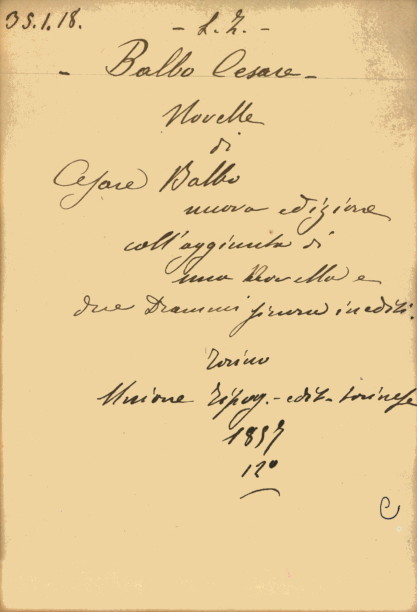 35.1.18. - L. I. -
- Balbo Cesare -
Novelle
di
Cesare Balbo
nuova edizione
coll'aggiunta di
una Novella e
due Drammi finora inediti.
Torino
Unione Tipog.-edit. torinese
1857
12°
C